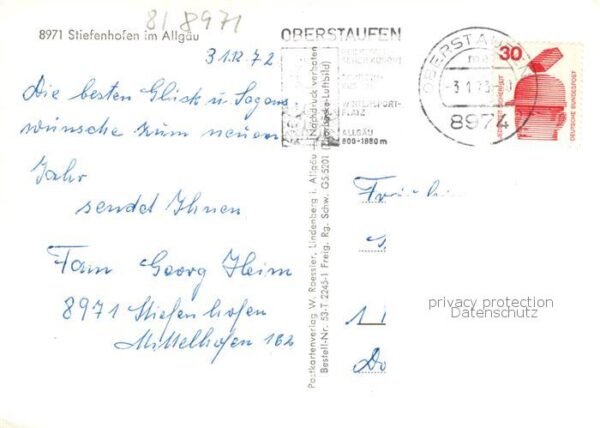 81 8971
8971 Stiefenhofen im Allgäu
31.12.72
Die besten Glück u. Segens
wünsche zum neuen
Jahr
sendet Ihnen
Fam Georg Heim
8971 Stiefenhofen
Mittelhofen 162
Postkartenverlag W. Roessler, Lindenberg i. Allgäu (Nachdruck verboten
Bestell-Nr. 53-T 2245-1 Freig. Rg. Schw. GS 5201
OBERSTAUFEN
WINTERSPORT-
PLATZ
ALLGÄU
800-1880 m
OBERSTAUFEN
8974
30
DEUTSCHE BUNDESPOST
privacy protection
Datenschutz